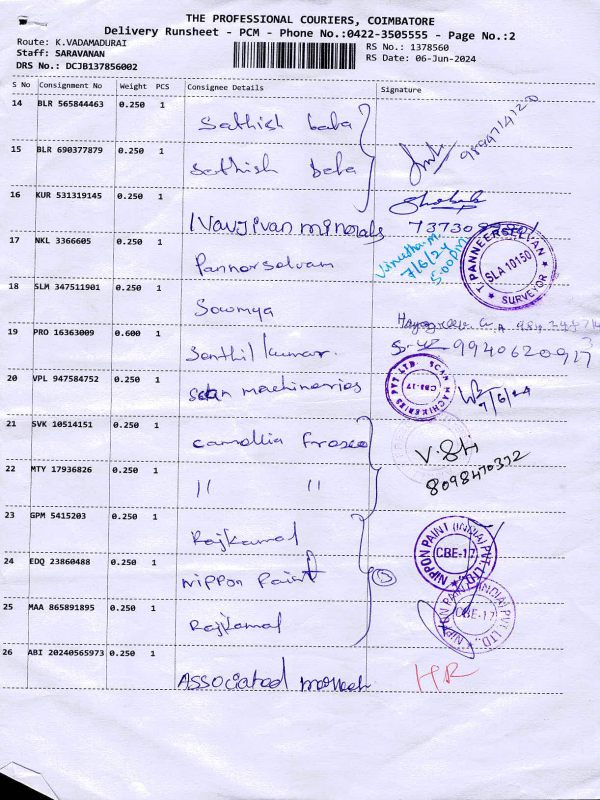 THE PROFESSIONAL COURIERS, COIMBATORE
Delivery Runsheet - PCM - Phone No.:0422-3505555 - Page No.:2
Route: K.VADAMADURAI
Staff: SARAVANAN
DRS No.: DCJB137856002
RS No.: 1378560
RS Date: 06-Jun-2024
S No Consignment No Weight PCS Consignee Details Signature
14 BLR 565844463 0.250 1 Sathish baba
15 BLR 690377879 0.250 1 Sathish baba
16 KUR 531319145 0.250 1 Navjivan minerals
17 NKL 3366605 0.250 1 Pannerselvam
Vinutha m
7/6/24
5:00pm
T. PANNEERSELVAN
SLA 10150
SURVEYOR
18 SLM 347511901 0.250 1 Sowmya
19 PRO 16363009 0.600 1 Senthil kumar.
9940620917
20 VPL 947584752 0.250 1 Scan machineries
SCAN MACHINERIES PVT LTD.
CBE-17
7/6/24
21 SVK 10514151 0.250 1 Camellia
V. Sti
8098470372
22 MTY 17936826 0.250 1 〃 〃
23 GPM 5415203 0.250 1 Rajkamal
NIPPON PAINT (INDIA) PVT. LTD.
CBE-17
24 EDQ 23860488 0.250 1 Nippon Paint
25 MAA 865891895 0.250 1 Rajkamal
NIPPON PAINT (INDIA) PVT. LTD.,
CBE-17
26 ABI 20240565973 0.250 1 Associated
HR